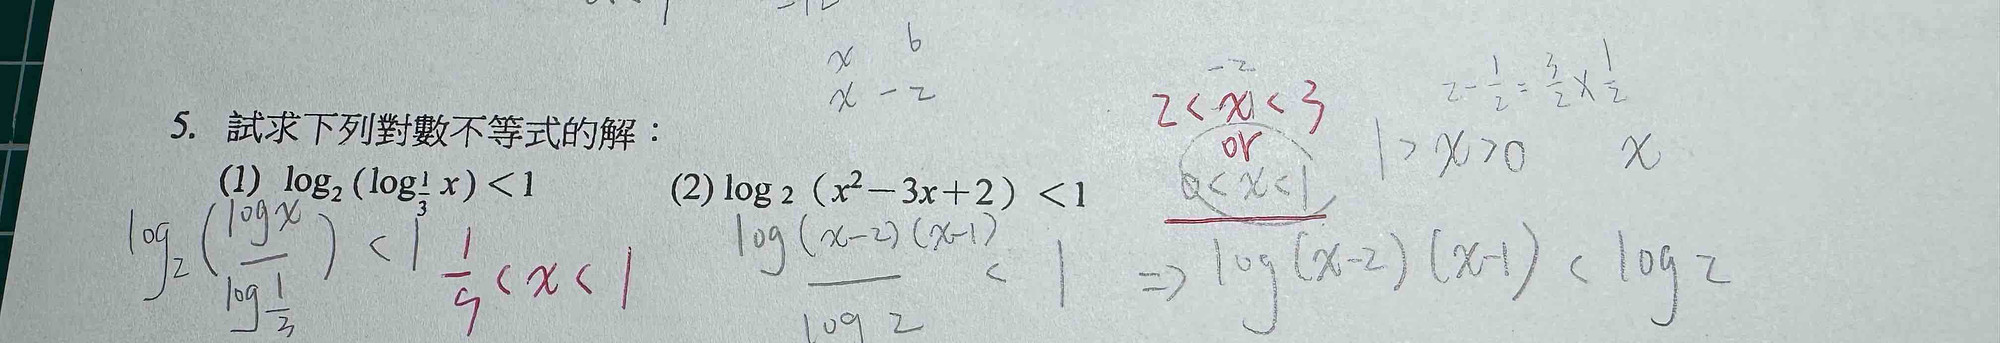 x 6
x -2
-2
2 < x < 3
or
0 < x < 1
2 - 1/2 = 3/2 × 1/2
1 > x > 0 x
5. 試求下列對數不等式的解：
(1) log₂(log_{1/3} x) < 1 (2) log₂(x²−3x+2) < 1
log₂(log x / log 1/3) < 1
1/9 < x < 1
log(x-2)(x-1) / log 2 < 1 => log(x-2)(x-1) < log 2